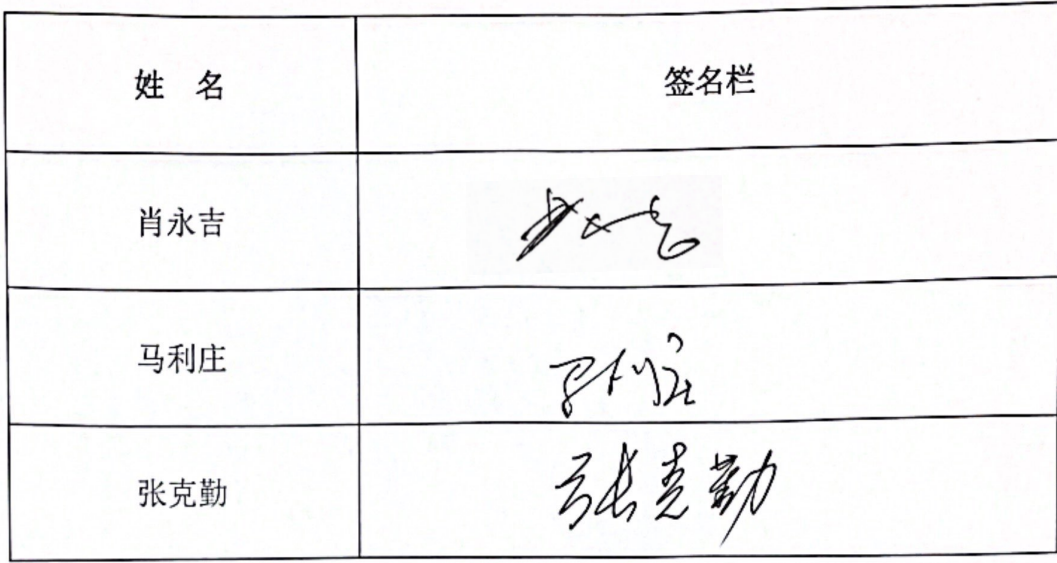 姓 名 签名栏
肖永吉
马利庄 马利庄
张克勤 张克勤